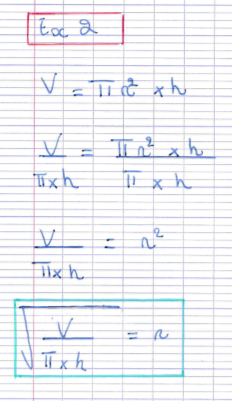 Ex 2
V = π r² × h
V / π × h = π r² × h / π × h
V / π × h = r²
√(V / π × h) = r